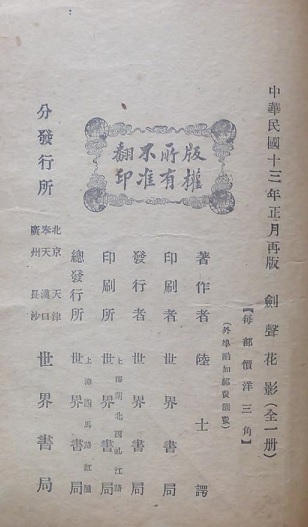 中華民國十三年正月再版
劍聲花影(全一册)
【每部價洋三角】
(外埠酌加郵費匯費)
版權
所有
不准
翻印
著作者 陸士諤
印刷者 世界書局
發行者 世界書局
印刷所 世界書局
上海閘北西虬江路
總發行所 世界書局
上海四馬路紅屋
分發行所 世界書局
北京 天津
奉天 漢口
廣州 長沙